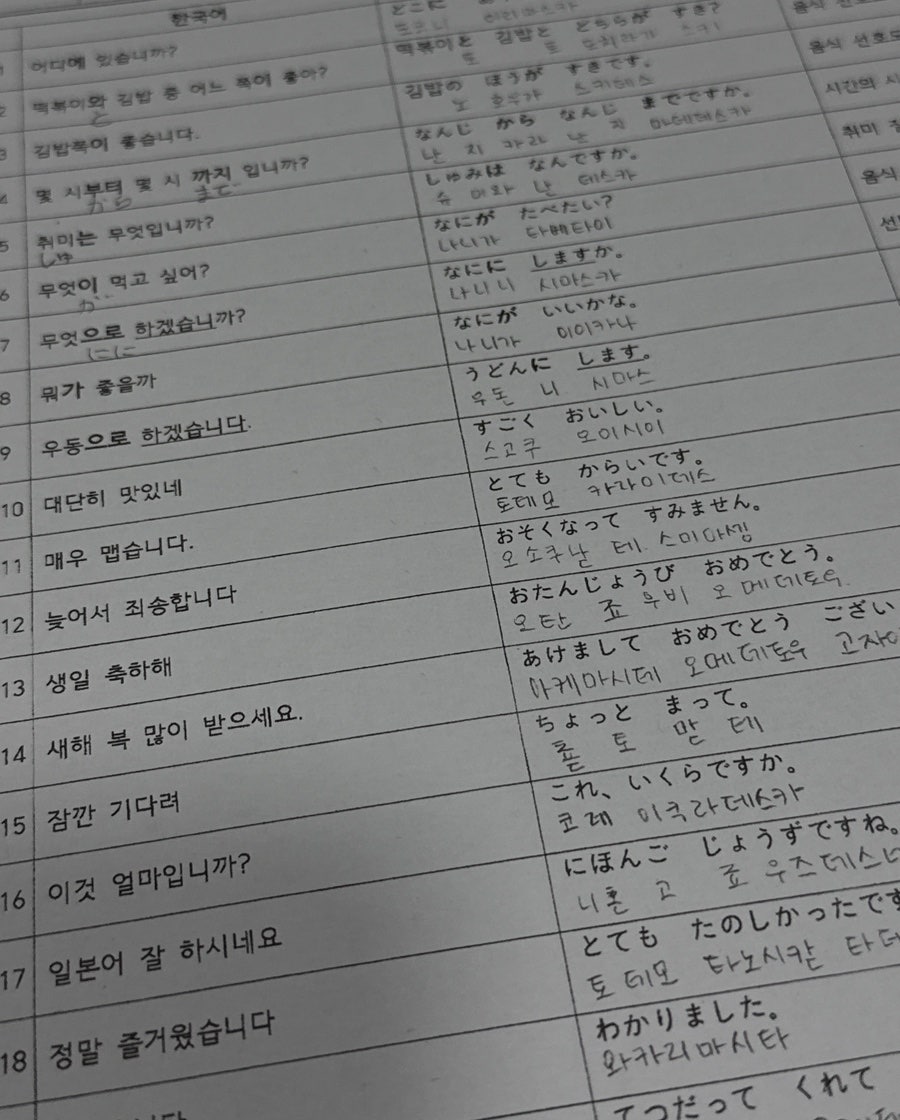 한국어
어디에 있습니까?
どこに
도코니 아리마스카
음식 선호
2 떡볶이와 김밥 중 어느 쪽이 좋아?
と
떡볶이と 김밥と どちらが すき?
토 토 도치라가 스키
음식 선호도
3 김밥쪽이 좋습니다.
김밥の ほうが すきです。
노 호우가 스키데스
시간의 시
4 몇 시부터 몇 시 까지 입니까?
から まで
なんじ から なんじ までですか。
난 지 카라 난 지 마데데스카
취미
5 취미는 무엇입니까?
しゅ
しゅみは なんですか。
슈 미와 난 데스카
음식
6 무엇이 먹고 싶어?
が
なにが たべたい?
나니가 타베타이
7 무엇으로 하겠습니까?
にに
なにに しますか。
나니니 시마스카
8 뭐가 좋을까
なにが いいかな。
나니가 이이카나
9 우동으로 하겠습니다.
うどんに します。
우돈 니 시마스
10 대단히 맛있네
すごく おいしい。
스고쿠 오이시이
11 매우 맵습니다.
とても からいです。
토테모 카라이데스
12 늦어서 죄송합니다
おそくなって すみません。
오소쿠낟 테. 스미마셍
13 생일 축하해
おたんじょうび おめでとう。
오탄 죠 우비 오메데토우.
14 새해 복 많이 받으세요.
あけまして おめでとう ござい
아케마시데 오메데토우 고자이
15 잠깐 기다려
ちょっと まって。
죧 토 맏 테
16 이것 얼마입니까?
これ、いくらですか。
코레 이쿠라데스카
17 일본어 잘 하시네요
にほんご じょうずですね。
니혼 고 죠 우즈데스네
18 정말 즐거웠습니다
とても たのしかったです
토테모 타노시칻 타데
わかりました。
와카리마시타
てつだって くれて